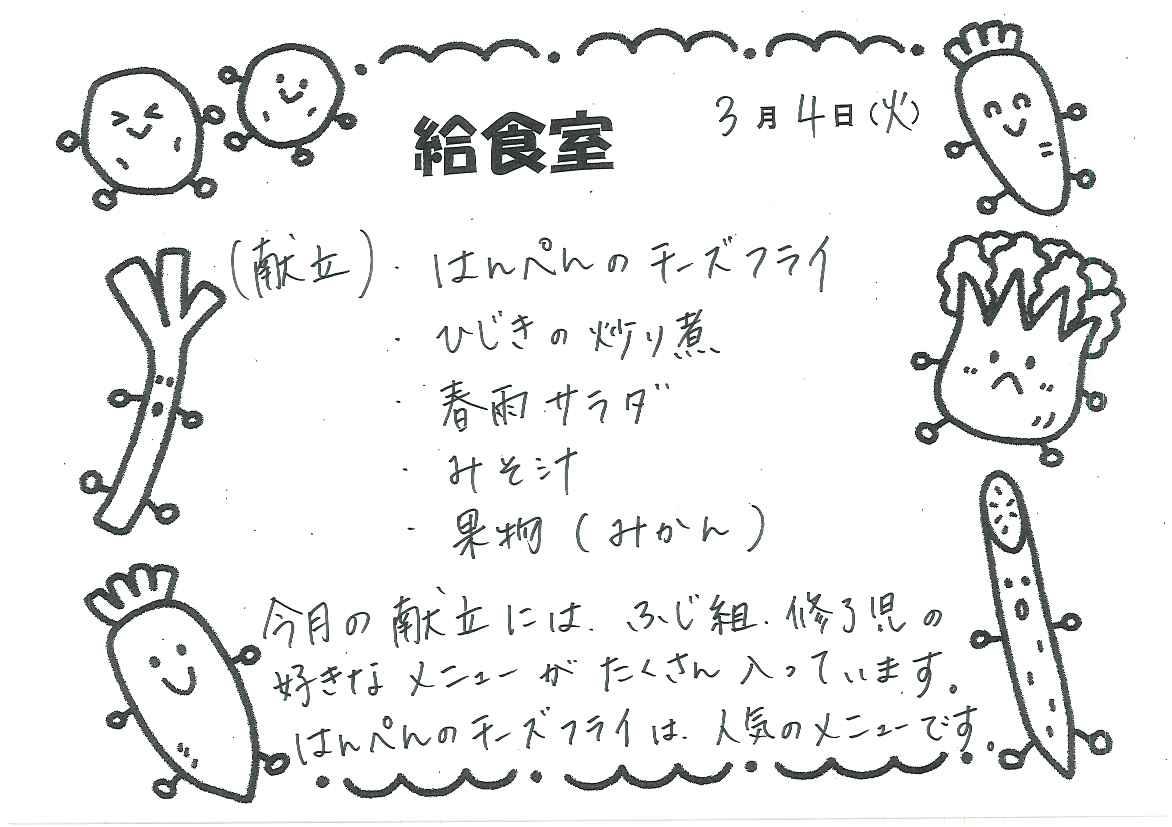 給食室
3月4日(火)
(献立)・はんぺんのチーズフライ
・ひじきの炒り煮
・春雨サラダ
・みそ汁
・果物(みかん)
今月の献立には、ふじ組、修了児の
好きなメニューがたくさん入っています。
はんぺんのチーズフライは、人気のメニューです。